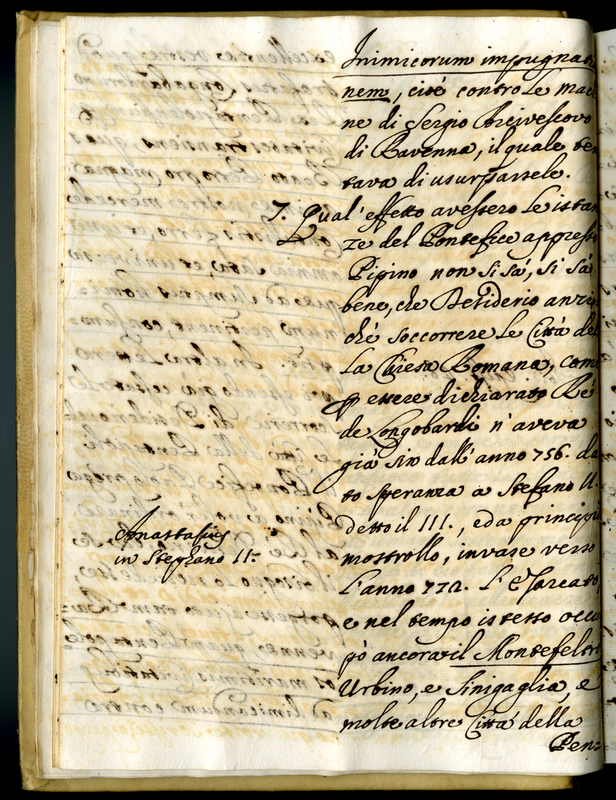 Inimicorum impugnatio
nem, cioè contro le mac
ne di Sergio Arcivescovo
di Ravenna, il quale ten
tava di usurparsele.
7. Qual' effetto avessero le istan
ze del Pontefice appresso
Pipino non si sà, si sà
bene, che Desiderio anzi
ché soccorrere le Città del
la Chiesa Romana, com
ettece dichiarato Ré
de Longobardi n'aveva
già sin dall'anno 756. da
to speranza a Stefano II.
detto il III., e da principio
mostrollo, invase verso
l'anno 772. l'Esarcato,
e nel tempo istesso occu
pò ancora il Montefeltro
Urbino, e Sinigaglia, e
molte altre Città della
Pen
Anastasius
in Stephano II.